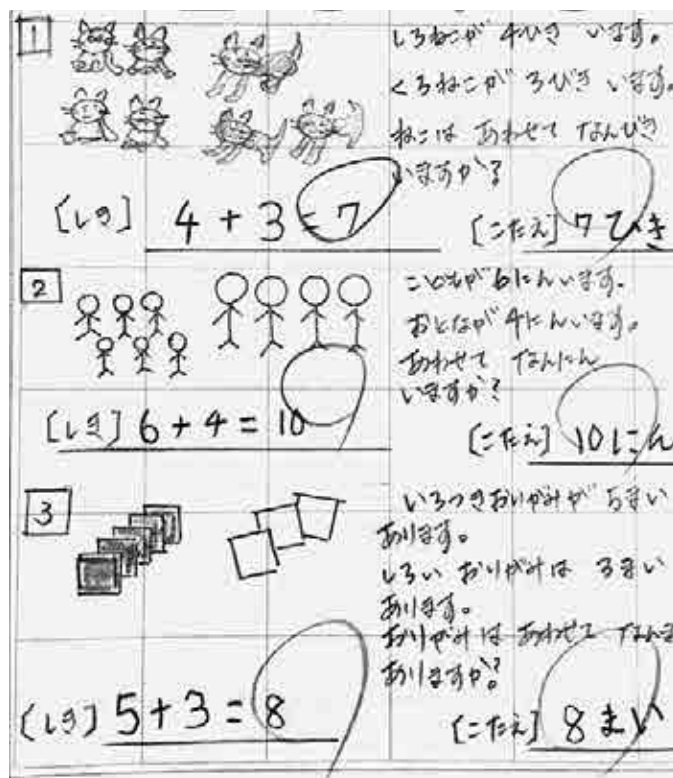 1
しろねこが 4ひき います。
くろねこが 3びき います。
ねこは あわせて なんびき
いますか?
[しき] 4+3=7
[こたえ] 7ひき
2
こどもが6にんいます。
おとなが4にんいます。
あわせて なんにん
いますか?
[しき] 6+4=10
[こたえ] 10にん
3
いろつきおりがみが 5まい
あります。
しろい おりがみは 3まい
あります。
おりがみは あわせて なんま
ありますか?
[しき] 5+3=8
[こたえ] 8まい